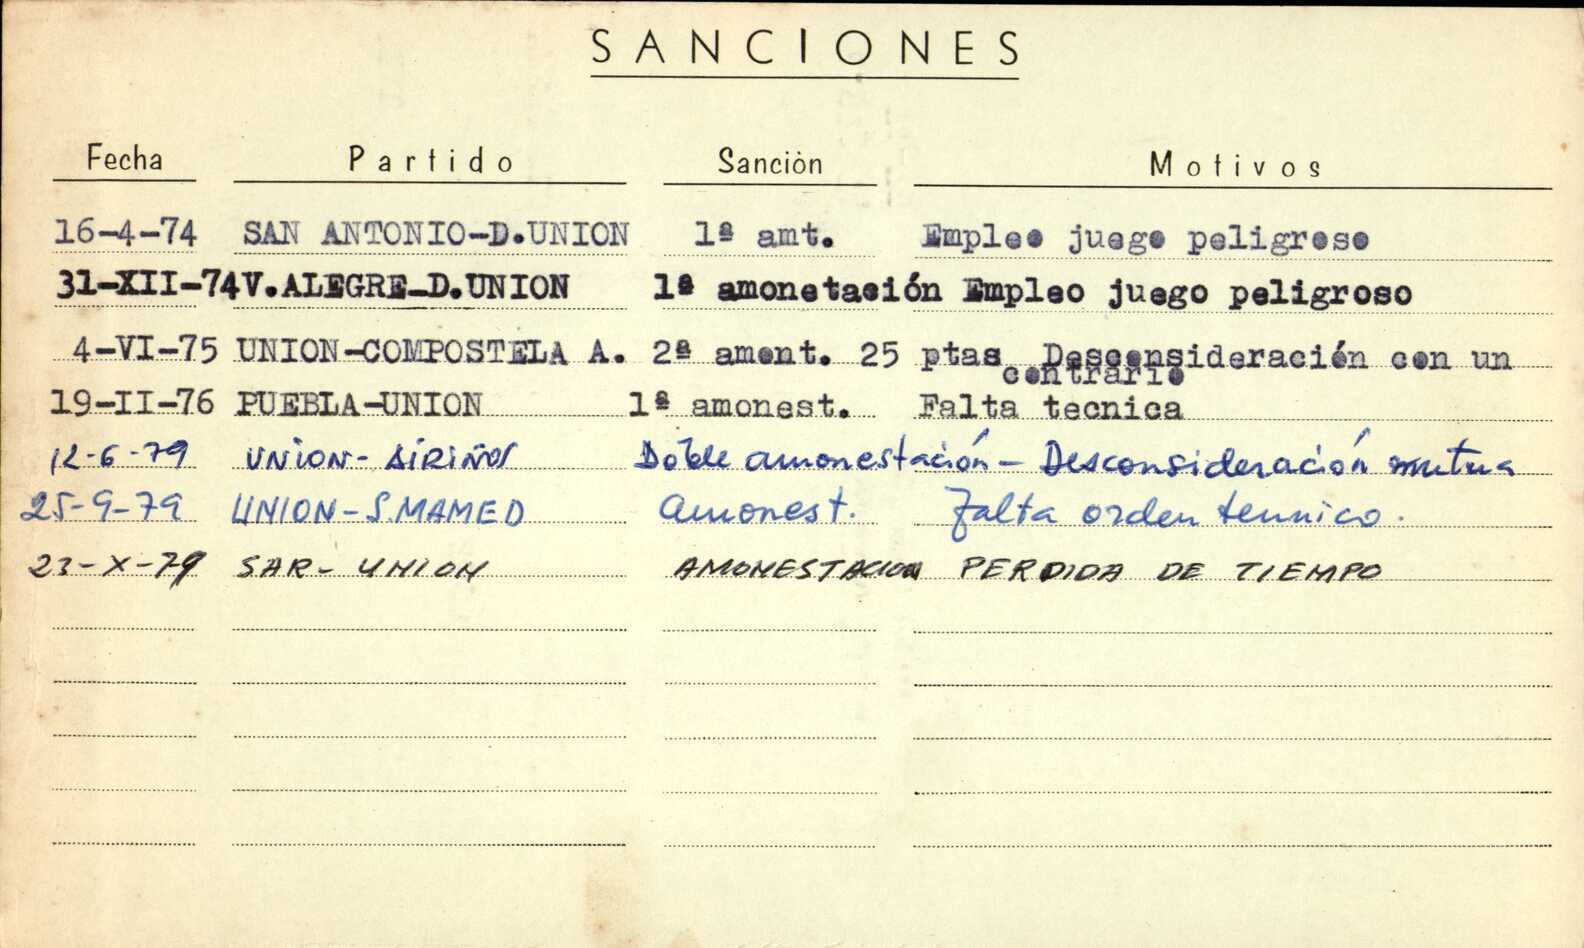 SANCIONES
Fecha Partido Sanción Motivos
16-4-74 SAN ANTONIO-D.UNION 1ª amt. Empleo juego peligroso
31-XII-74 V.ALEGRE-D.UNION 1ª amonetación Empleo juego peligroso
4-VI-75 UNION-COMPOSTELA A. 2ª amont. 25 ptas Desconsideración con un
contrario
19-II-76 PUEBLA-UNION 1ª amonest. Falta tecnica
12-6-79 UNION- AIRIÑOS Doble amonestación - Desconsideración mutua
25-9-79 UNION-S.MAMED Amonest. Falta orden tecnico.
23-X-79 SAR- UNION AMONESTACION PERDIDA DE TIEMPO